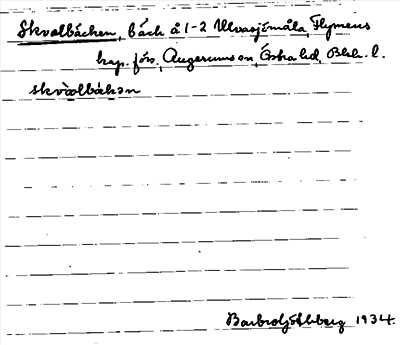 Skvalbäcken, bäck å 1-2 Ulvasjömåla, Flymens
kap. förs., Augerums sn, Östra hd, Blek. l.
skvàlbäkən
1934.